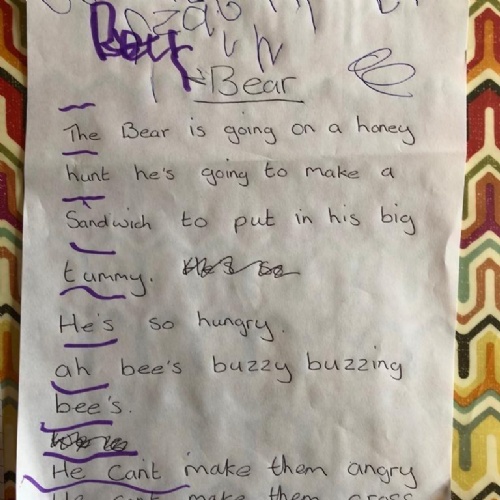 Bear
Bear
The Bear is going on a honey
hunt he's going to make a
Sandwich to put in his big
tummy.
He's so hungry.
ah bee's buzzy buzzing
bee's.
He can't make them angry
He can't make them cross